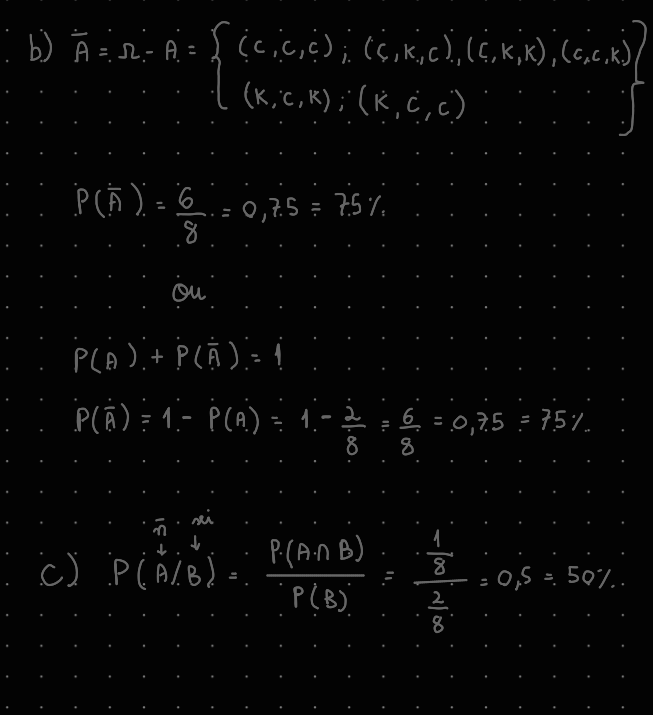 b) Ā = Ω - A = { (C,C,C); (C,K,C), (C,K,K), (C,C,K)
(K,C,K); (K,C,C) }
P(Ā) = 6/8 = 0,75 = 75%
ou
P(A) + P(Ā) = 1
P(Ā) = 1 - P(A) = 1 - 2/8 = 6/8 = 0,75 = 75%
n̄ sei
↓ ↓
c) P(A/B) = P(A∩B)/P(B) = (1/8)/(2/8) = 0,5 = 50%